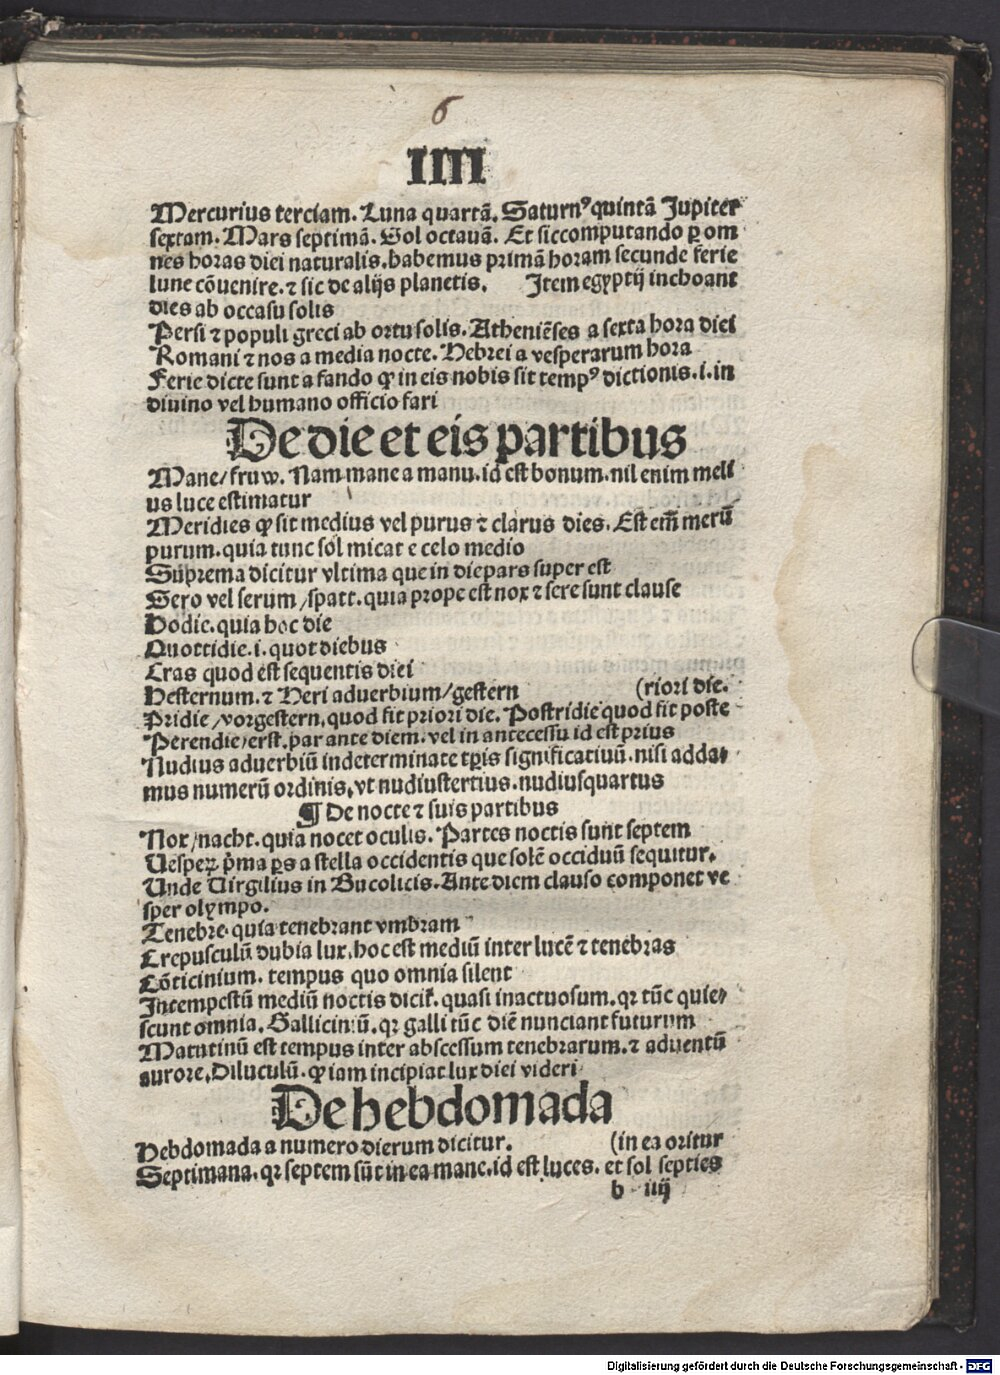 6
IIII
Mercurius terciam. Luna quartā. Saturnꝰ quintā Jupiter
sextam. Mars septimā. Sol octauā. Et sic computando ꝑ om
nes horas diei naturalis. habemus primā horam secunde ferie
lune cōuenire. ⁊ sic de alijs planetis. Item egyptij inchoant
dies ab occasu solis
Persi ⁊ populi greci ab ortu solis. Atheniēses a sexta hora diei
Romani ⁊ nos a media nocte. Hebrei a vesperarum hora
Ferie dicte sunt a fando ꝙ in eis nobis sit tempꝰ dictionis .i. in
diuino vel humano officio fari
De die et eis partibus
Mane / fruw. Nam mane a manu. id est bonum. nil enim meli
us luce estimatur
Meridies ꝙ sit medius vel purus ⁊ clarus dies. Est em̄ merū
purum. quia tunc sol micat e celo medio
Suprema dicitur vltima que in die pars super est
Sero vel serum / spatt. quia prope est nox ⁊ sere sunt clause
Hodie. quia hoc die
Quottidie .i. quot diebus
Cras quod est sequentis diei
Hesternum. ⁊ Heri aduerbium / gestern (riori die.
Pridie / vorgestern, quod fit priori die. Postridie quod fit poste
Perendie / erst. par ante diem. vel in antecessu id est prius
Nudius aduerbiū indeterminate tꝑis significatiuū. nisi adda⸗
mus numerū ordinis, vt nudiustertius. nudiusquartus
¶ De nocte ⁊ suis partibus
Nox / nacht. quia nocet oculis. Partes noctis sunt septem
Vesper p̄ma ꝑs a stella occidentis que solē occiduū sequitur.
Unde Virgilius in Bucolicis. Ante diem clauso componet ve
sper olympo.
Tenebre. quia tenebrant vmbram
Crepusculū dubia lux. hoc est mediū inter lucē ⁊ tenebras
Cōticinium. tempus quo omnia silent
Intempestū mediū noctis dicit̄. quasi inactuosum. qꝛ tūc quie⸗
scunt omnia. Galliciniū. qꝛ galli tūc diē nunciant futurum
Matutinū est tempus inter abscessum tenebrarum. ⁊ aduentū
aurore. Diluculū. ꝙ iam incipiat lux diei videri
De hebdomada
Hebdomada a numero dierum dicitur. (in ea oritur
Septimana. qꝛ septem sūt in ea mane. id est luces. et sol septies
b iiij
Digitalisierung gefördert durch die Deutsche Forschungsgemeinschaft - DFG